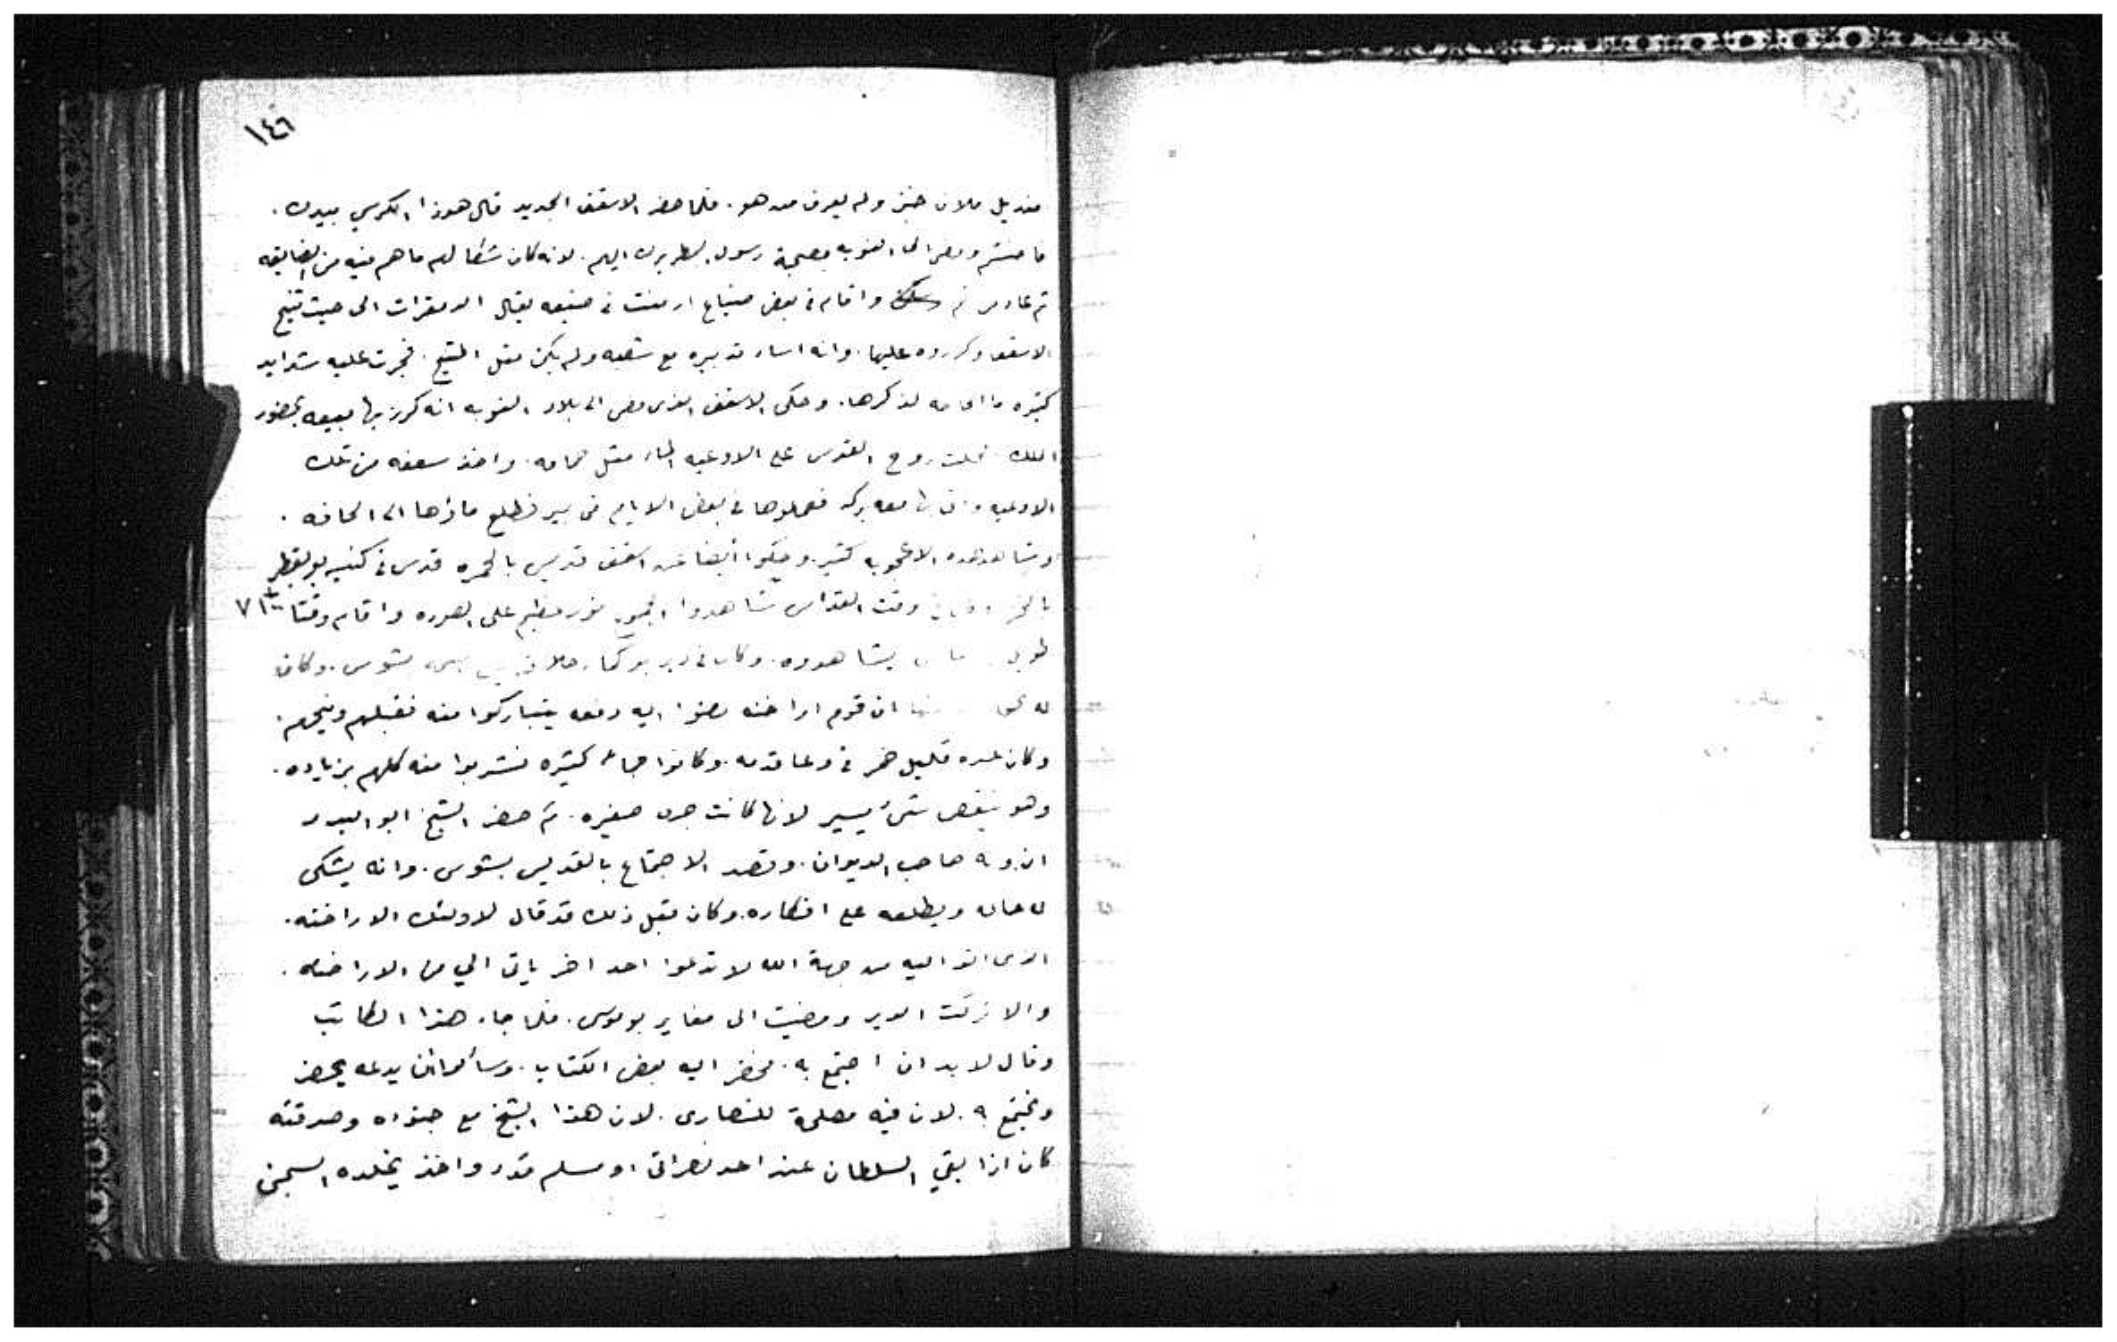 ١٤٦
منديل ملان خبز ولم يعرف من هو. فلما حضر الاسقف الجديد قال هوذا الكرسي بيدك.
ومضى الى النوبه بصحبة رسول البطريرك اليهم. لانه كان شكا لهم ما هم فيه من الضايقه
ثم عاد من واقام فى بعض ضياع ارمنت فى ضيعه يقال الى حيث تنيح
الاسقف وكرزوه عليها. وانه اساء تدبيره مع شعبه ولم يكن مثل المتنيح. فجرت عليه شدايد
كثيره ما الحاجه لذكرها. وحكى الاسقف الذى مضى الى بلاد النوبه انه كرز بها بيعه بحضور
الملك فحلت روح القدس على الاوعيه الماء مثل حمامه. واخذ سعفه من تلك
الاوعيه معه بركه فجعلوها فى بعض الايام فى بير فطلع ماؤها الى الحافه.
وشاهد هذه الاعجوبه كثير. وحكوا ايضا عن اسقف قديس بالخمره قدس فى كنيسه بو بقطر
وقت القداس شاهدوا الجميع نور عظيم على الصوره واقام وقتا ٧١٤
يشاهدوه. وكان فى دير بو كما بشوس. وكان
ان قوم اراخنه مضوا اليه دفعه يتباركوا منه فقبلهم ونيحهم.
وكان عنده قليل خمر فى وعا قدمه. وكانوا جماعه كثيره فشربوا منه كلهم بزياده.
وهو ينقص شئ يسير لانها كانت جره صغيره. ثم حضر الشيخ ابو البدر
صاحب الديوان. وقصد الاجتماع بالقديس بشوس. وانه يشكى
له حاله ويطلعه على افكاره. وكان قبل ذلك قد قال لاولئك الاراخنه.
الذى اتوا اليه من جهة الله لا تدعوا احد اخر ياتى الي من الاراخنه.
والا تركت الدير ومضيت الى مغاير بو موسى. فلما جاء هذا الكاتب
وقال لا بد ان اجتمع به. فحضر اليه بعض الكتاب. وسألوه ان يدعه يحضر
ويجتمع به. لان فيه مصلحة للنصارى. لان هذا الشيخ مع جنوده وصدقته
كان اذا بقي السلطان عند احد نصرانى او مسلم قدر واخذ يخلده السجن